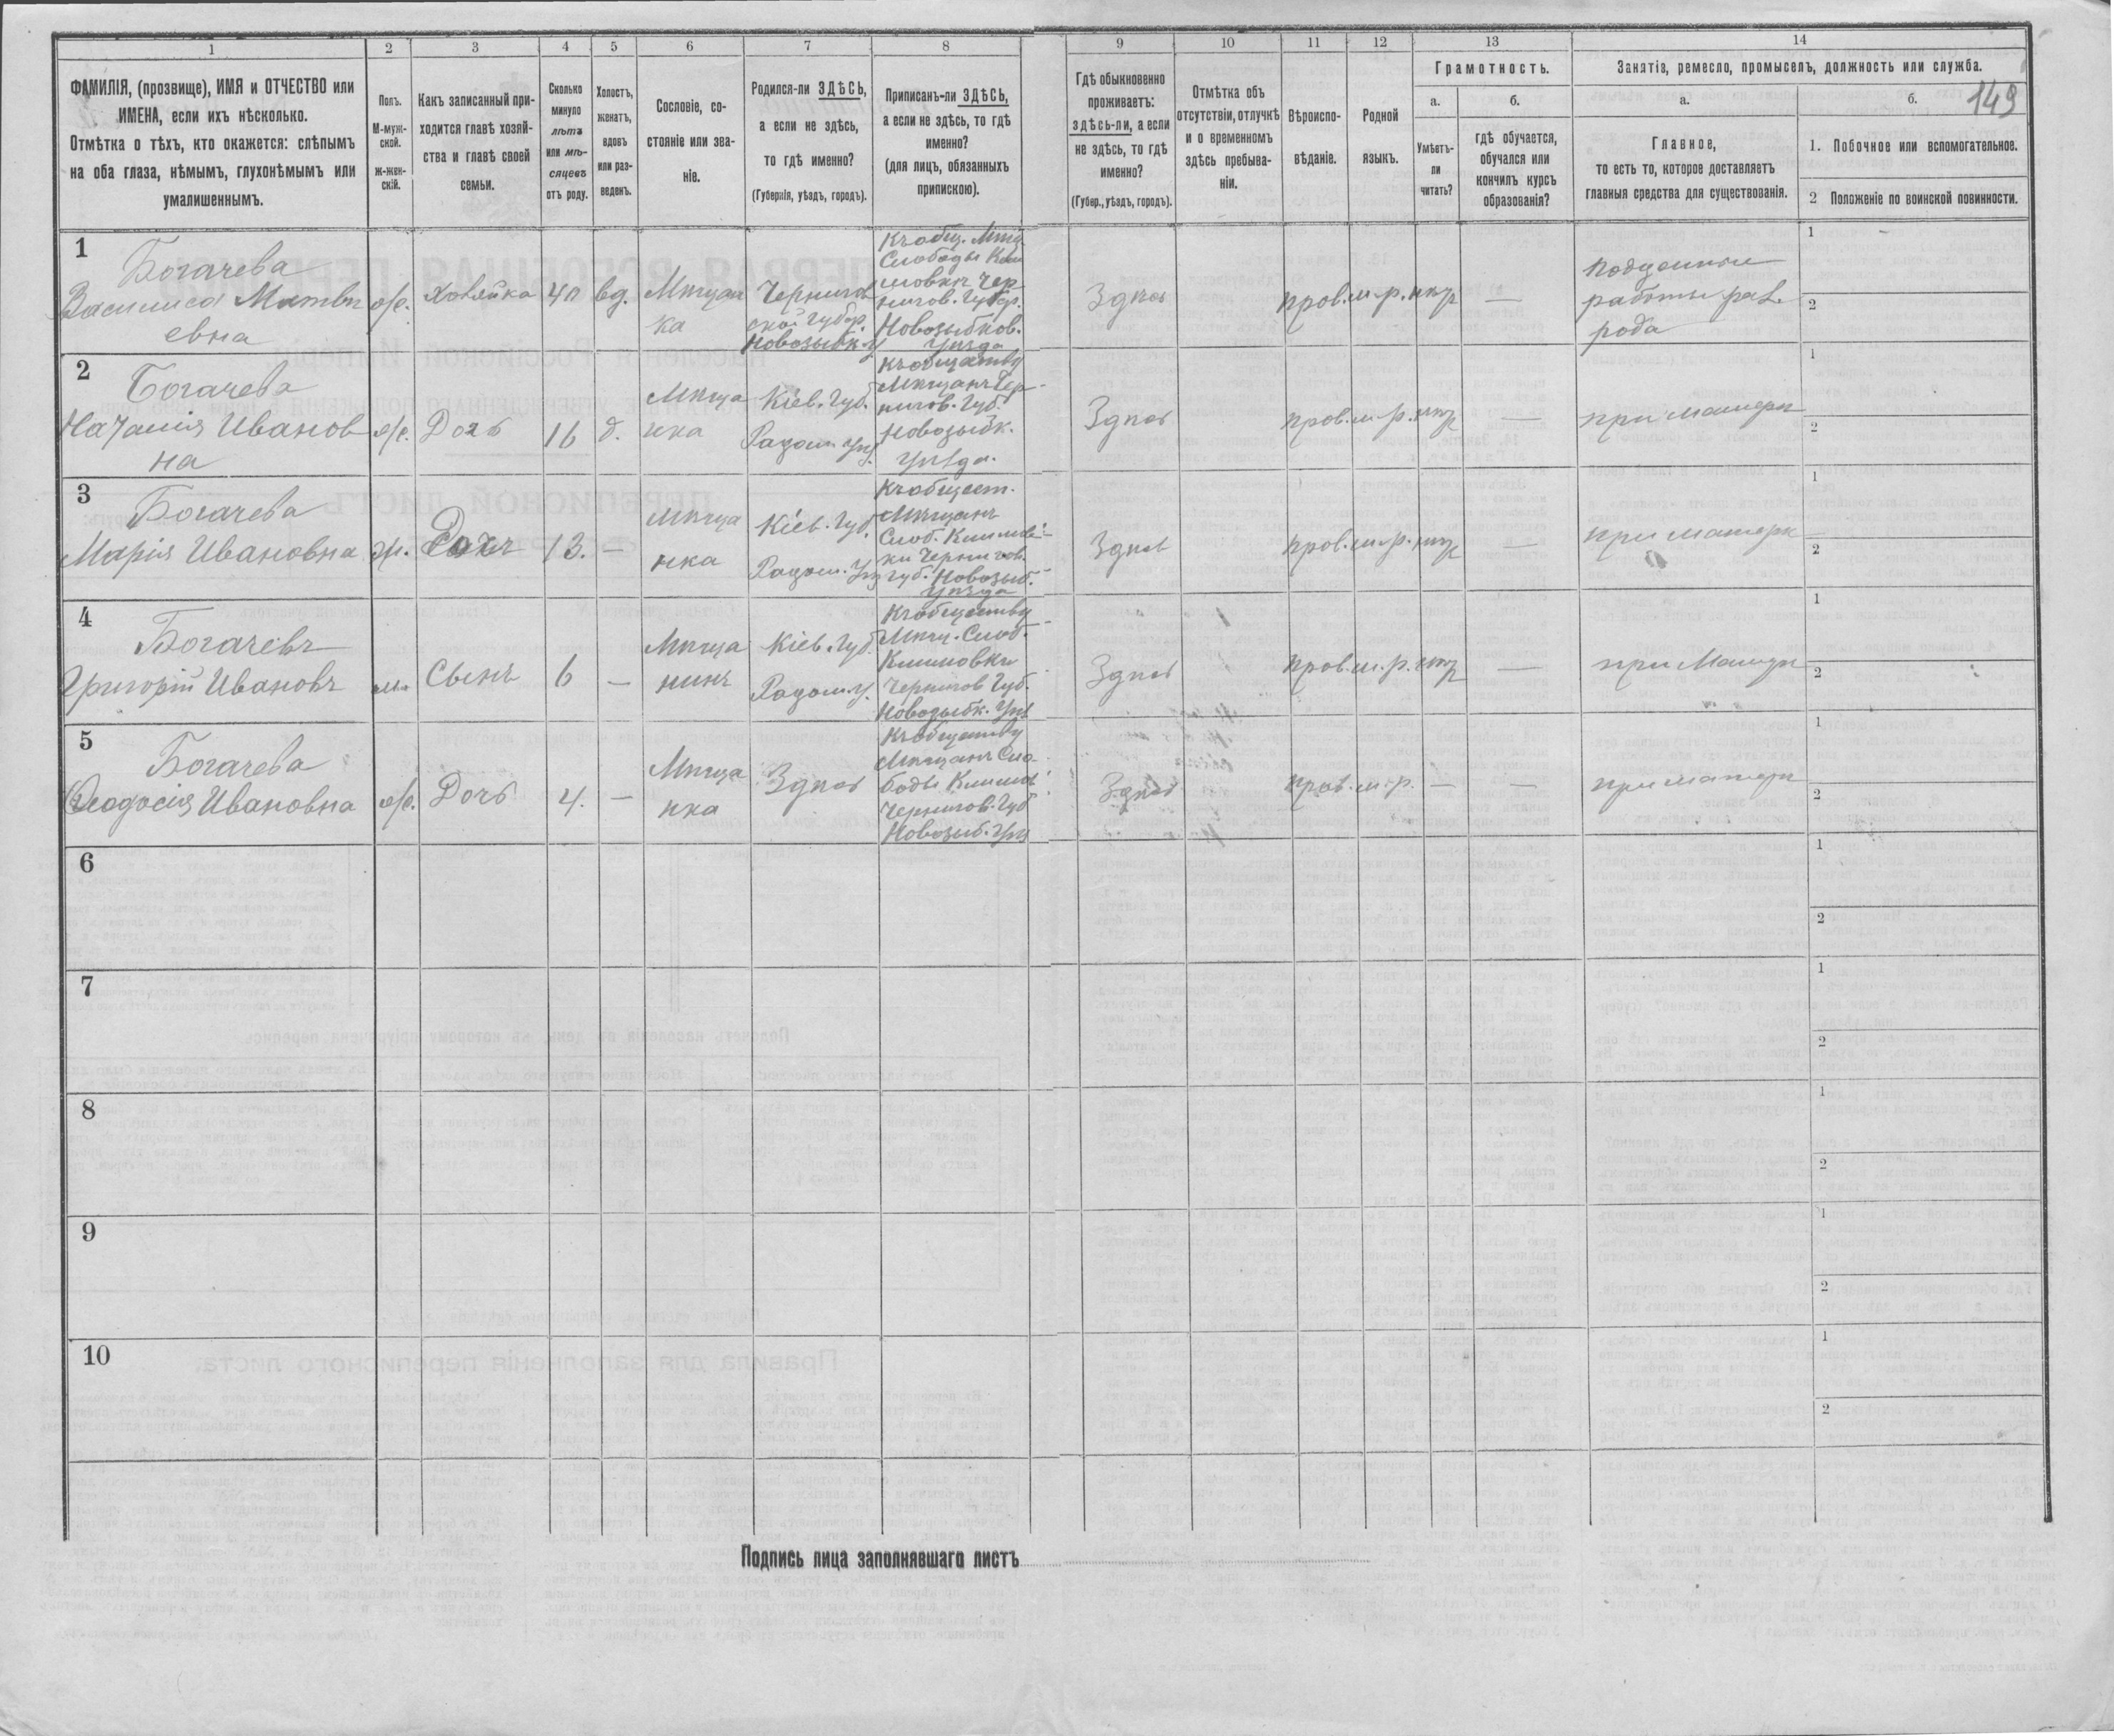 1
2
3
4
5
6
7
8
9
10
11
12
13
14
ФАМИЛІЯ, (прозвище), ИМЯ и ОТЧЕСТВО или
ИМЕНА, если ихъ нѣсколько.
Отмѣтка о тѣхъ, кто окажется: слѣпымъ
на оба глаза, нѣмымъ, глухонѣмымъ или
умалишеннымъ.
Полъ.
М-муж-
ской.
ж-жен-
скій.
Какъ записанный при-
ходится главѣ хозяй-
ства и главѣ своей
семьи.
Сколько
минуло
лѣтъ
или мѣ-
сяцевъ
отъ роду.
Холостъ,
женатъ,
вдовъ
или раз-
веденъ.
Сословіе, со-
стояніе или зва-
ніе.
Родился-ли ЗДѢСЬ,
а если не здѣсь,
то гдѣ именно?
(Губернія, уѣздъ, городъ).
Приписанъ-ли ЗДѢСЬ,
а если не здѣсь, то гдѣ
именно?
(для лицъ, обязанныхъ
припискою).
Гдѣ обыкновенно
проживаетъ:
здѣсь-ли, а если
не здѣсь, то гдѣ
именно?
(Губер., уѣздъ, городъ).
Отмѣтка объ
отсутствіи, отлучкѣ
и о временномъ
здѣсь пребыва-
ніи.
Вѣроиспо-
вѣданіе.
Родной
языкъ.
Грамотность.
а.
Умѣетъ-
ли
читать?
б.
гдѣ обучается,
обучался или
кончилъ курсъ
образованія?
Занятіе, ремесло, промыселъ, должность или служба.
а.
Главное,
то есть то, которое доставляетъ
главныя средства для существованія.
б.
149
1. Побочное или вспомогательное.
2 Положеніе по воинской повинности.
1
Богачева
Василиса Матвѣ
евна
ж.
Хозяйка
40
вд.
Мѣщан
ка
Чернигов
ской Губер.
Новозыбк. У
Къ общ. Мѣщ
Слободы Кли
мовки Чер
нигов. Губер.
Новозыбков.
Уѣзда
Здѣсь
прав.
р.
нѣт
—
Поденныя
работы раз.
рода
1
-
2
2
Богачева
Наталія Иванов
на
ж.
Дочь
16
д.
Мѣща
нка
Кіев. Губ.
Радом. Уѣз.
Къ обществу
Мѣщанъ Чер-
нигов. Губ.
Новозыбк.
Уѣзда.
Здѣсь
прав.
р.
нѣт
—
при матери
1
2
3
Богачева
Марія Ивановна
ж.
Дочь
13.
—
Мѣща
нка
Кіев. Губ.
Радом. Уѣз
Къ общест.
Мѣщанъ
Слоб. Климов
ки Чернигов.
Губ. Новозыб.
Уѣзда
Здѣсь
прав.
р.
нѣт
—
при матери
1
2
4
Богачевъ
Григорій Ивановъ
м.
Сынъ
6
—
Мѣща
нинъ
Кіев. Губ.
Радом. у.
Къ обществу
Мѣщ. Слоб.
Климовки
Чернигов Губ.
Новозыбк. Уѣз
Здѣсь
прав.
р.
нѣт
—
при Матери
1
2
5
Богачева
Ѳеодосія Ивановна
ж.
Дочь
4.
—
Мѣща
нка
Здѣсь
Къ обществу
Мѣщанъ Сло
боды Климов
Чернигов. Губ
Новозыб. Уѣз
Здѣсь
прав.
р.
—
—
при матери
1
2
6
1
2
7
1
2
8
1
2
9
1
2
10
1
2
Подпись лица заполнявшаго листъ